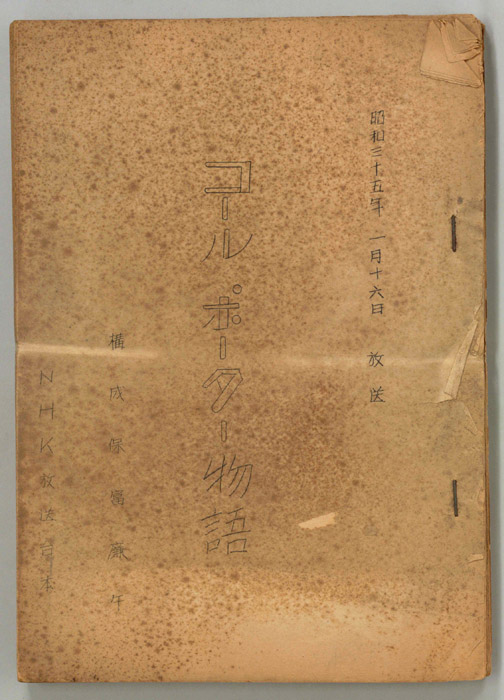 昭和三十五年 一月十六日 放送
コール ポーター物語
構成 保富康午
NHK放送台本